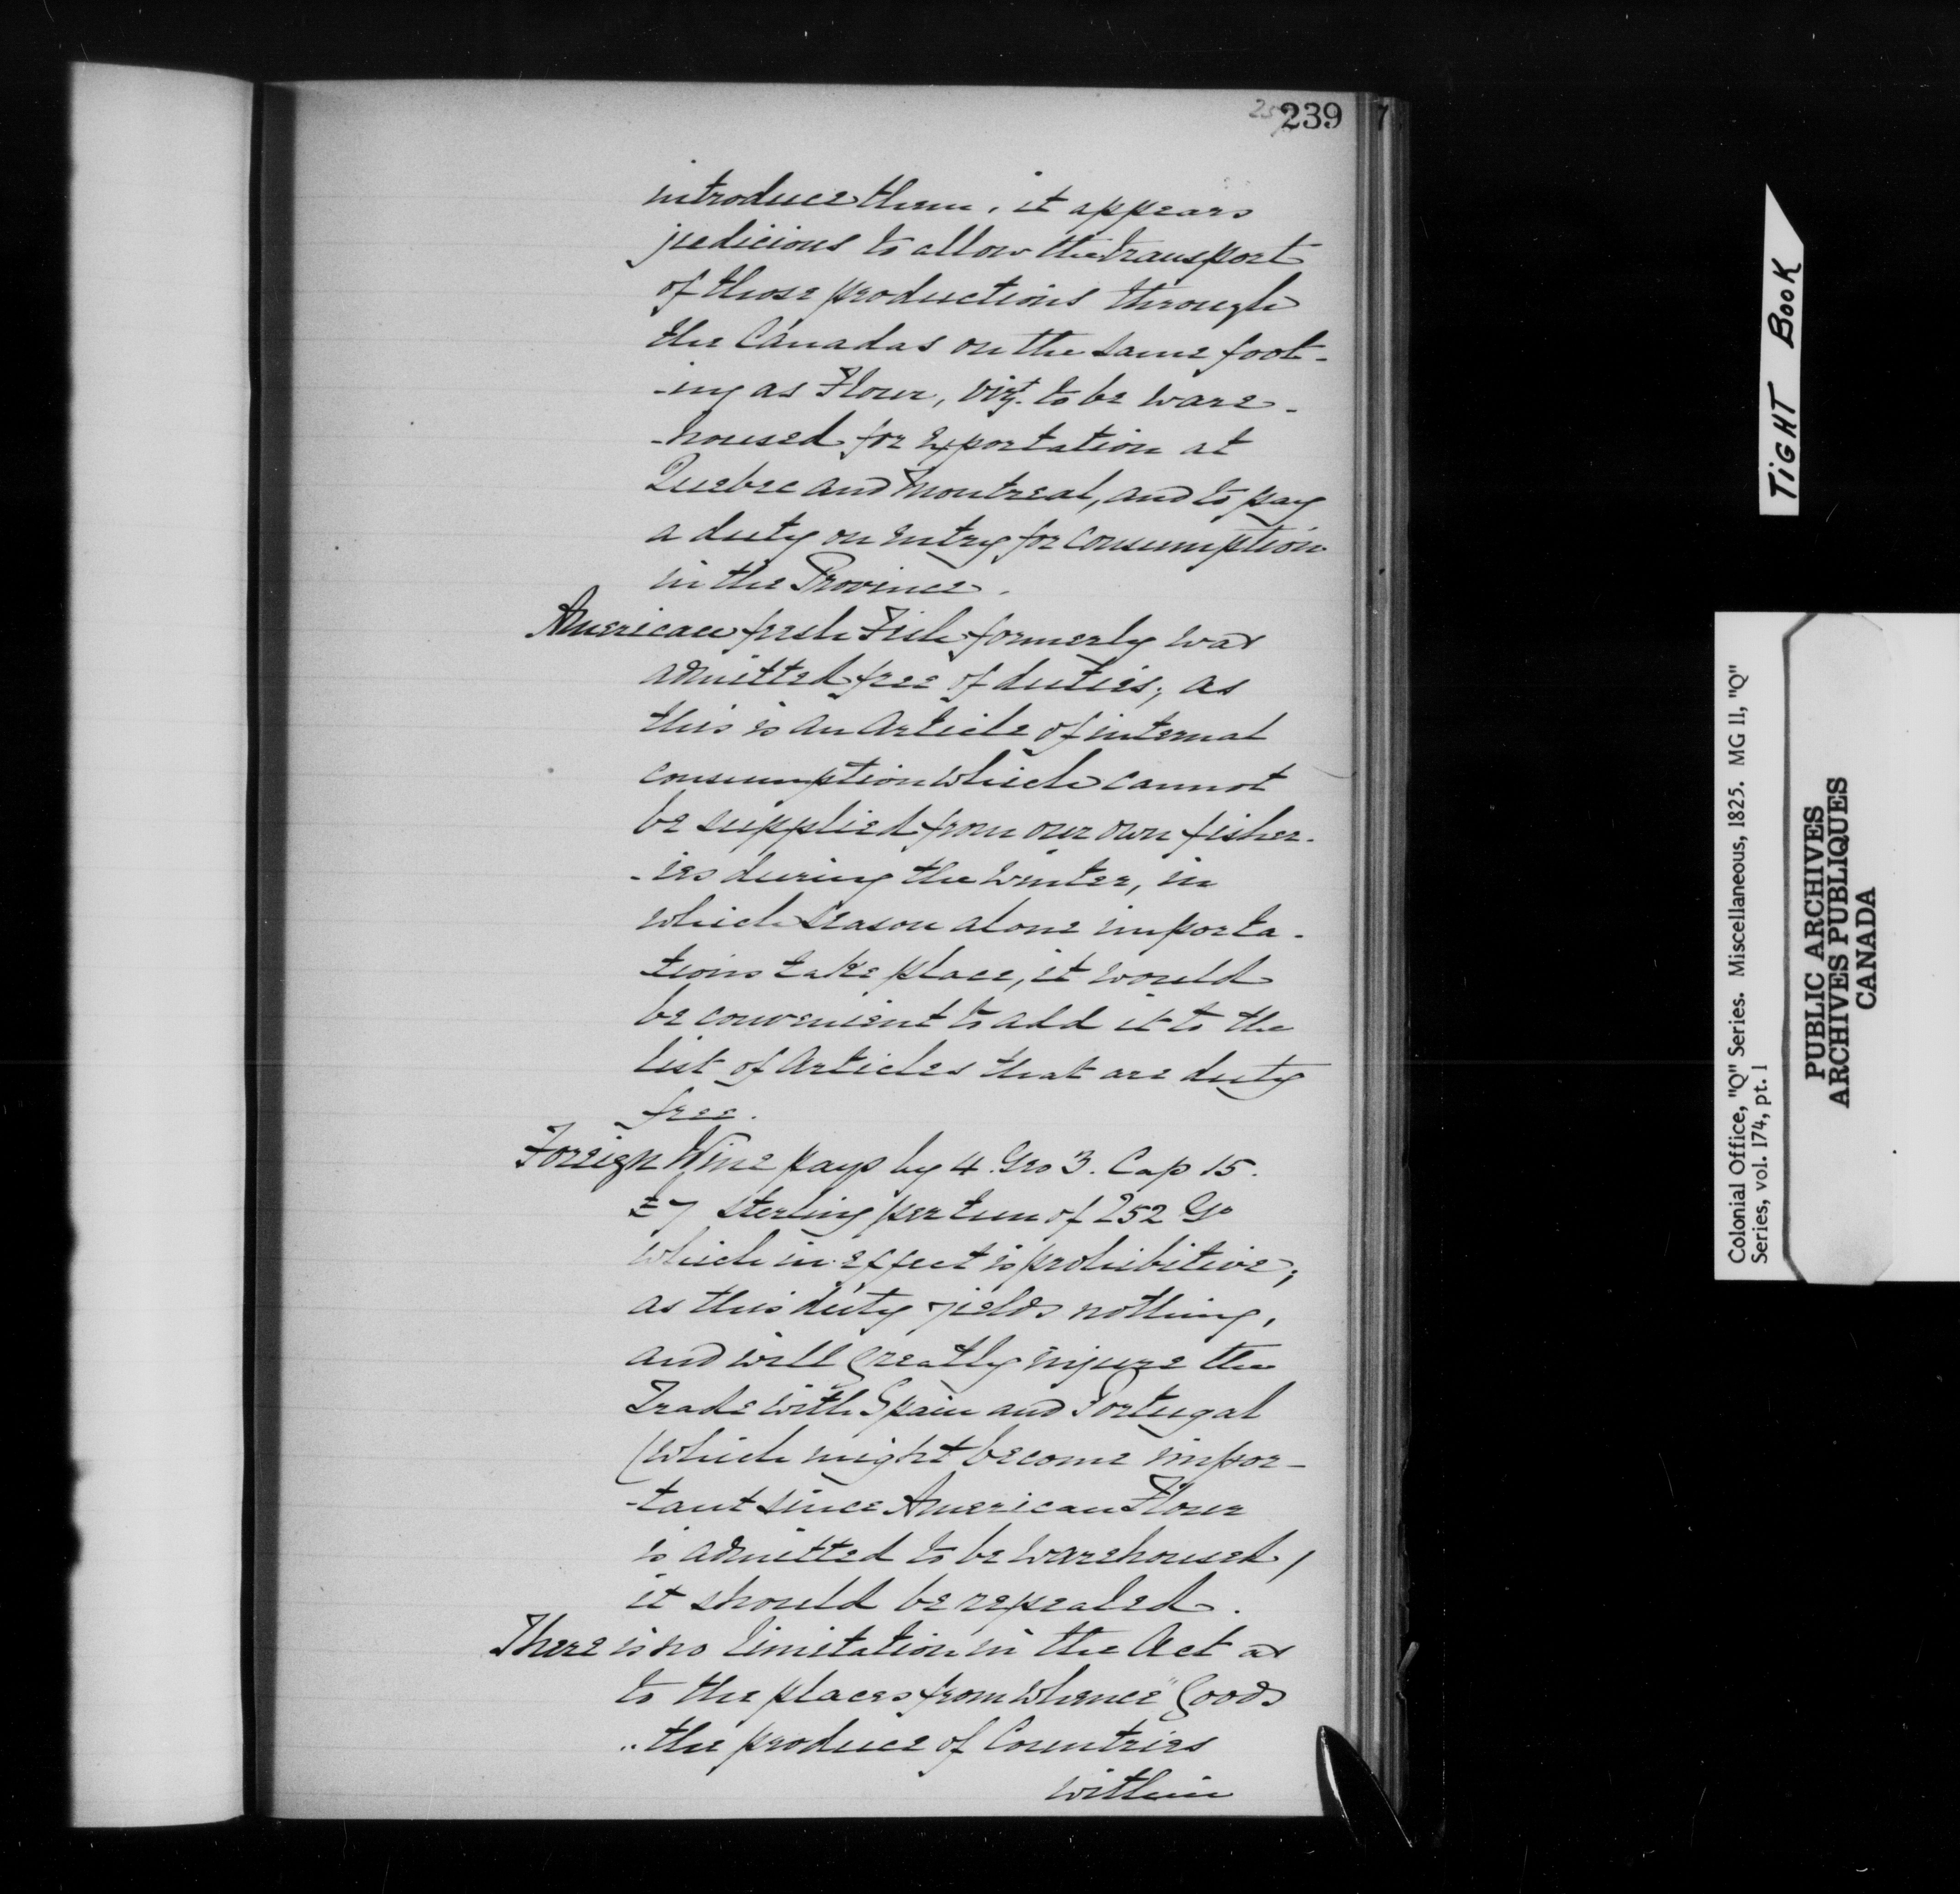 239
introduce them, it appears
judicious to allow the transport
of those productions through
the Canadas on the same foot-
-ing as Flour, vizt. to be ware-
-housed for Exportation at
Quebec and Montreal, and to pay
a duty on entry for consumption
in the Province.
American fresh Fish formerly was
admitted free of duties; as
this is an article of internal
consumption which cannot
be supplied from our own fisher-
-ies during the winter, in
which season alone importa-
tions take place, it would
be convenient to add it to the
list of Articles that are duty
free.
Foreign Wine pays by 4. Geo 3. Cap 15.
£7 sterling per tun of 252 Gs
which in effect is prohibitive;
as this duty yields nothing,
and will greatly injure the
Trade with Spain and Portugal
(which might become impor-
-tant since American Flour
is admitted to be warehoused)
it should be repealed.
There is no limitation in the Act as
to the places from whence "Goods
"the produce of Countries
within
TIGHT BOOK
Colonial Office, "Q" Series. Miscellaneous, 1825. MG 11, "Q"
Series, vol. 174, pt. 1
PUBLIC ARCHIVES
ARCHIVES PUBLIQUES
CANADA